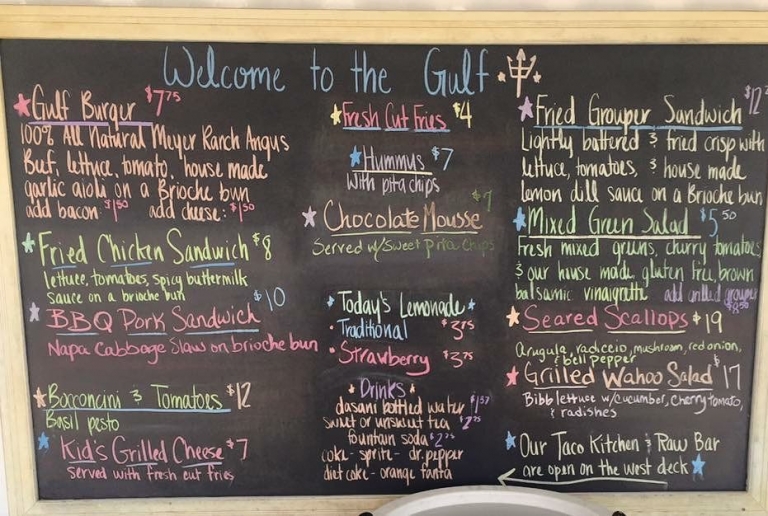 Welcome to the Gulf
Gulf Burger $7.75
100% All Natural Meyer Ranch Angus
Beef, lettuce, tomato, house made
garlic aioli on a Brioche bun
add bacon $1.50 add cheese: $1.50
Fried Chicken Sandwich $8
lettuce, tomatoes, spicy buttermilk
sauce on a brioche bun
BBQ Pork Sandwich $10
Napa Cabbage Slaw on brioche bun
Bocconcini & Tomatoes $12
Basil pesto
Kid's Grilled Cheese $7
served with fresh cut fries
Fresh Cut Fries $4
Hummus $7
with pita chips
Chocolate Mousse $7
Served w/Sweet Pita Chips
Today's Lemonade
Traditional $3.75
Strawberry $3.75
Drinks
dasani bottled water
sweet or unsweet tea $2.75
fountain soda $2.75
coke - sprite - dr. pepper
diet coke - orange fanta
Fried Grouper Sandwich $12
Lightly battered & fried crisp with
lettuce, tomatoes, & house made
lemon dill sauce on a Brioche bun
Mixed Green Salad $5.50
Fresh mixed greens, cherry tomatoes
& our house made gluten free brown
balsamic vinaigrette add grilled grouper
$8.50
Seared Scallops $19
Arugula, radiccio, mushroom, red onion,
& bell pepper
Grilled Wahoo Salad $17
Bibb lettuce w/cucumber, Cherry tomato,
& radishes
Our Taco Kitchen & Raw Bar
are open on the west deck